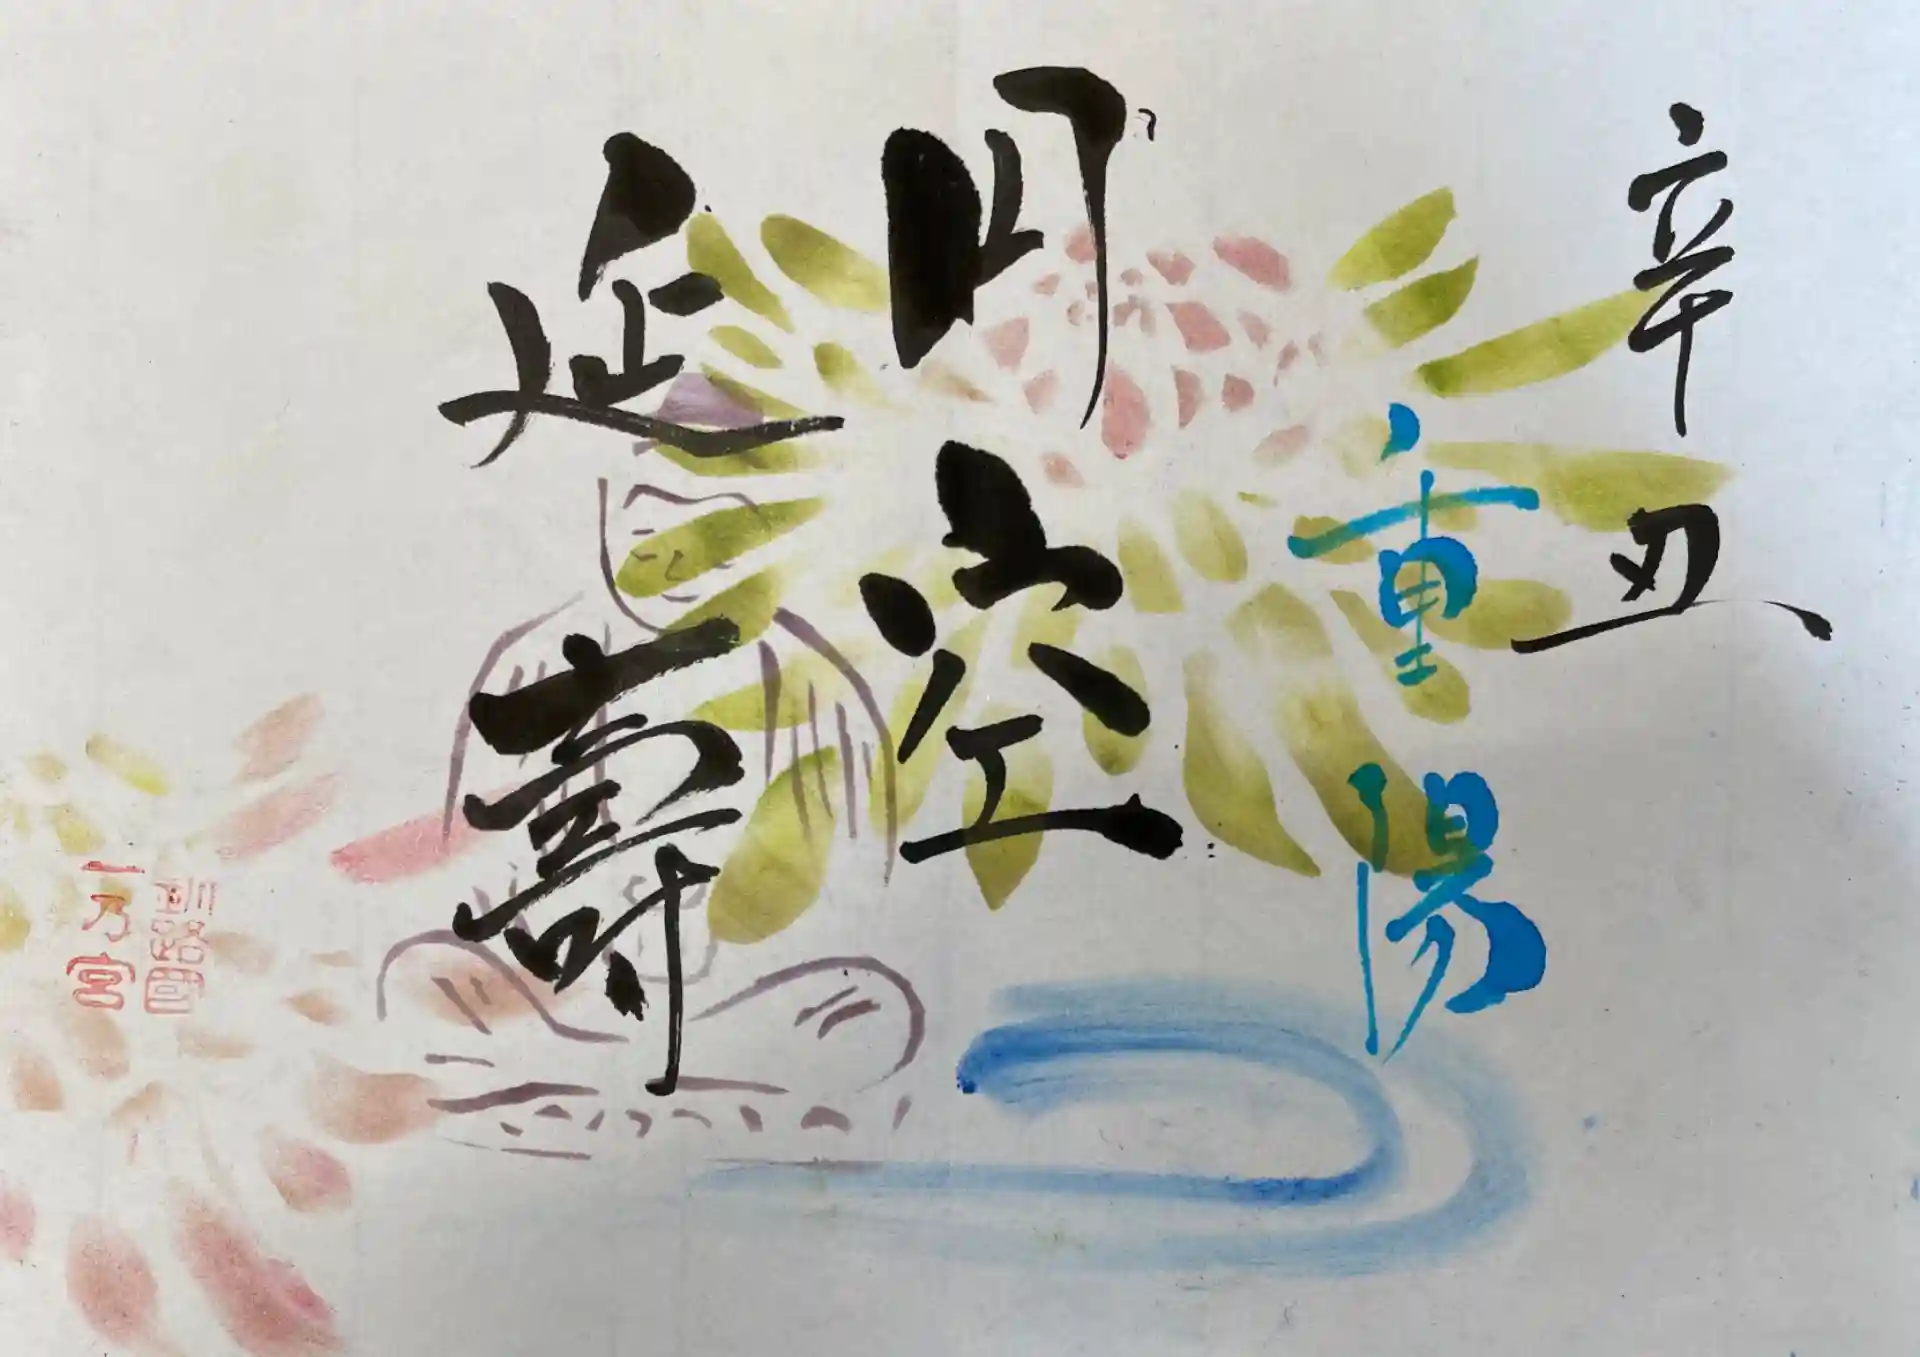 辛丑
重陽
空
延壽
釧路國
一乃宮